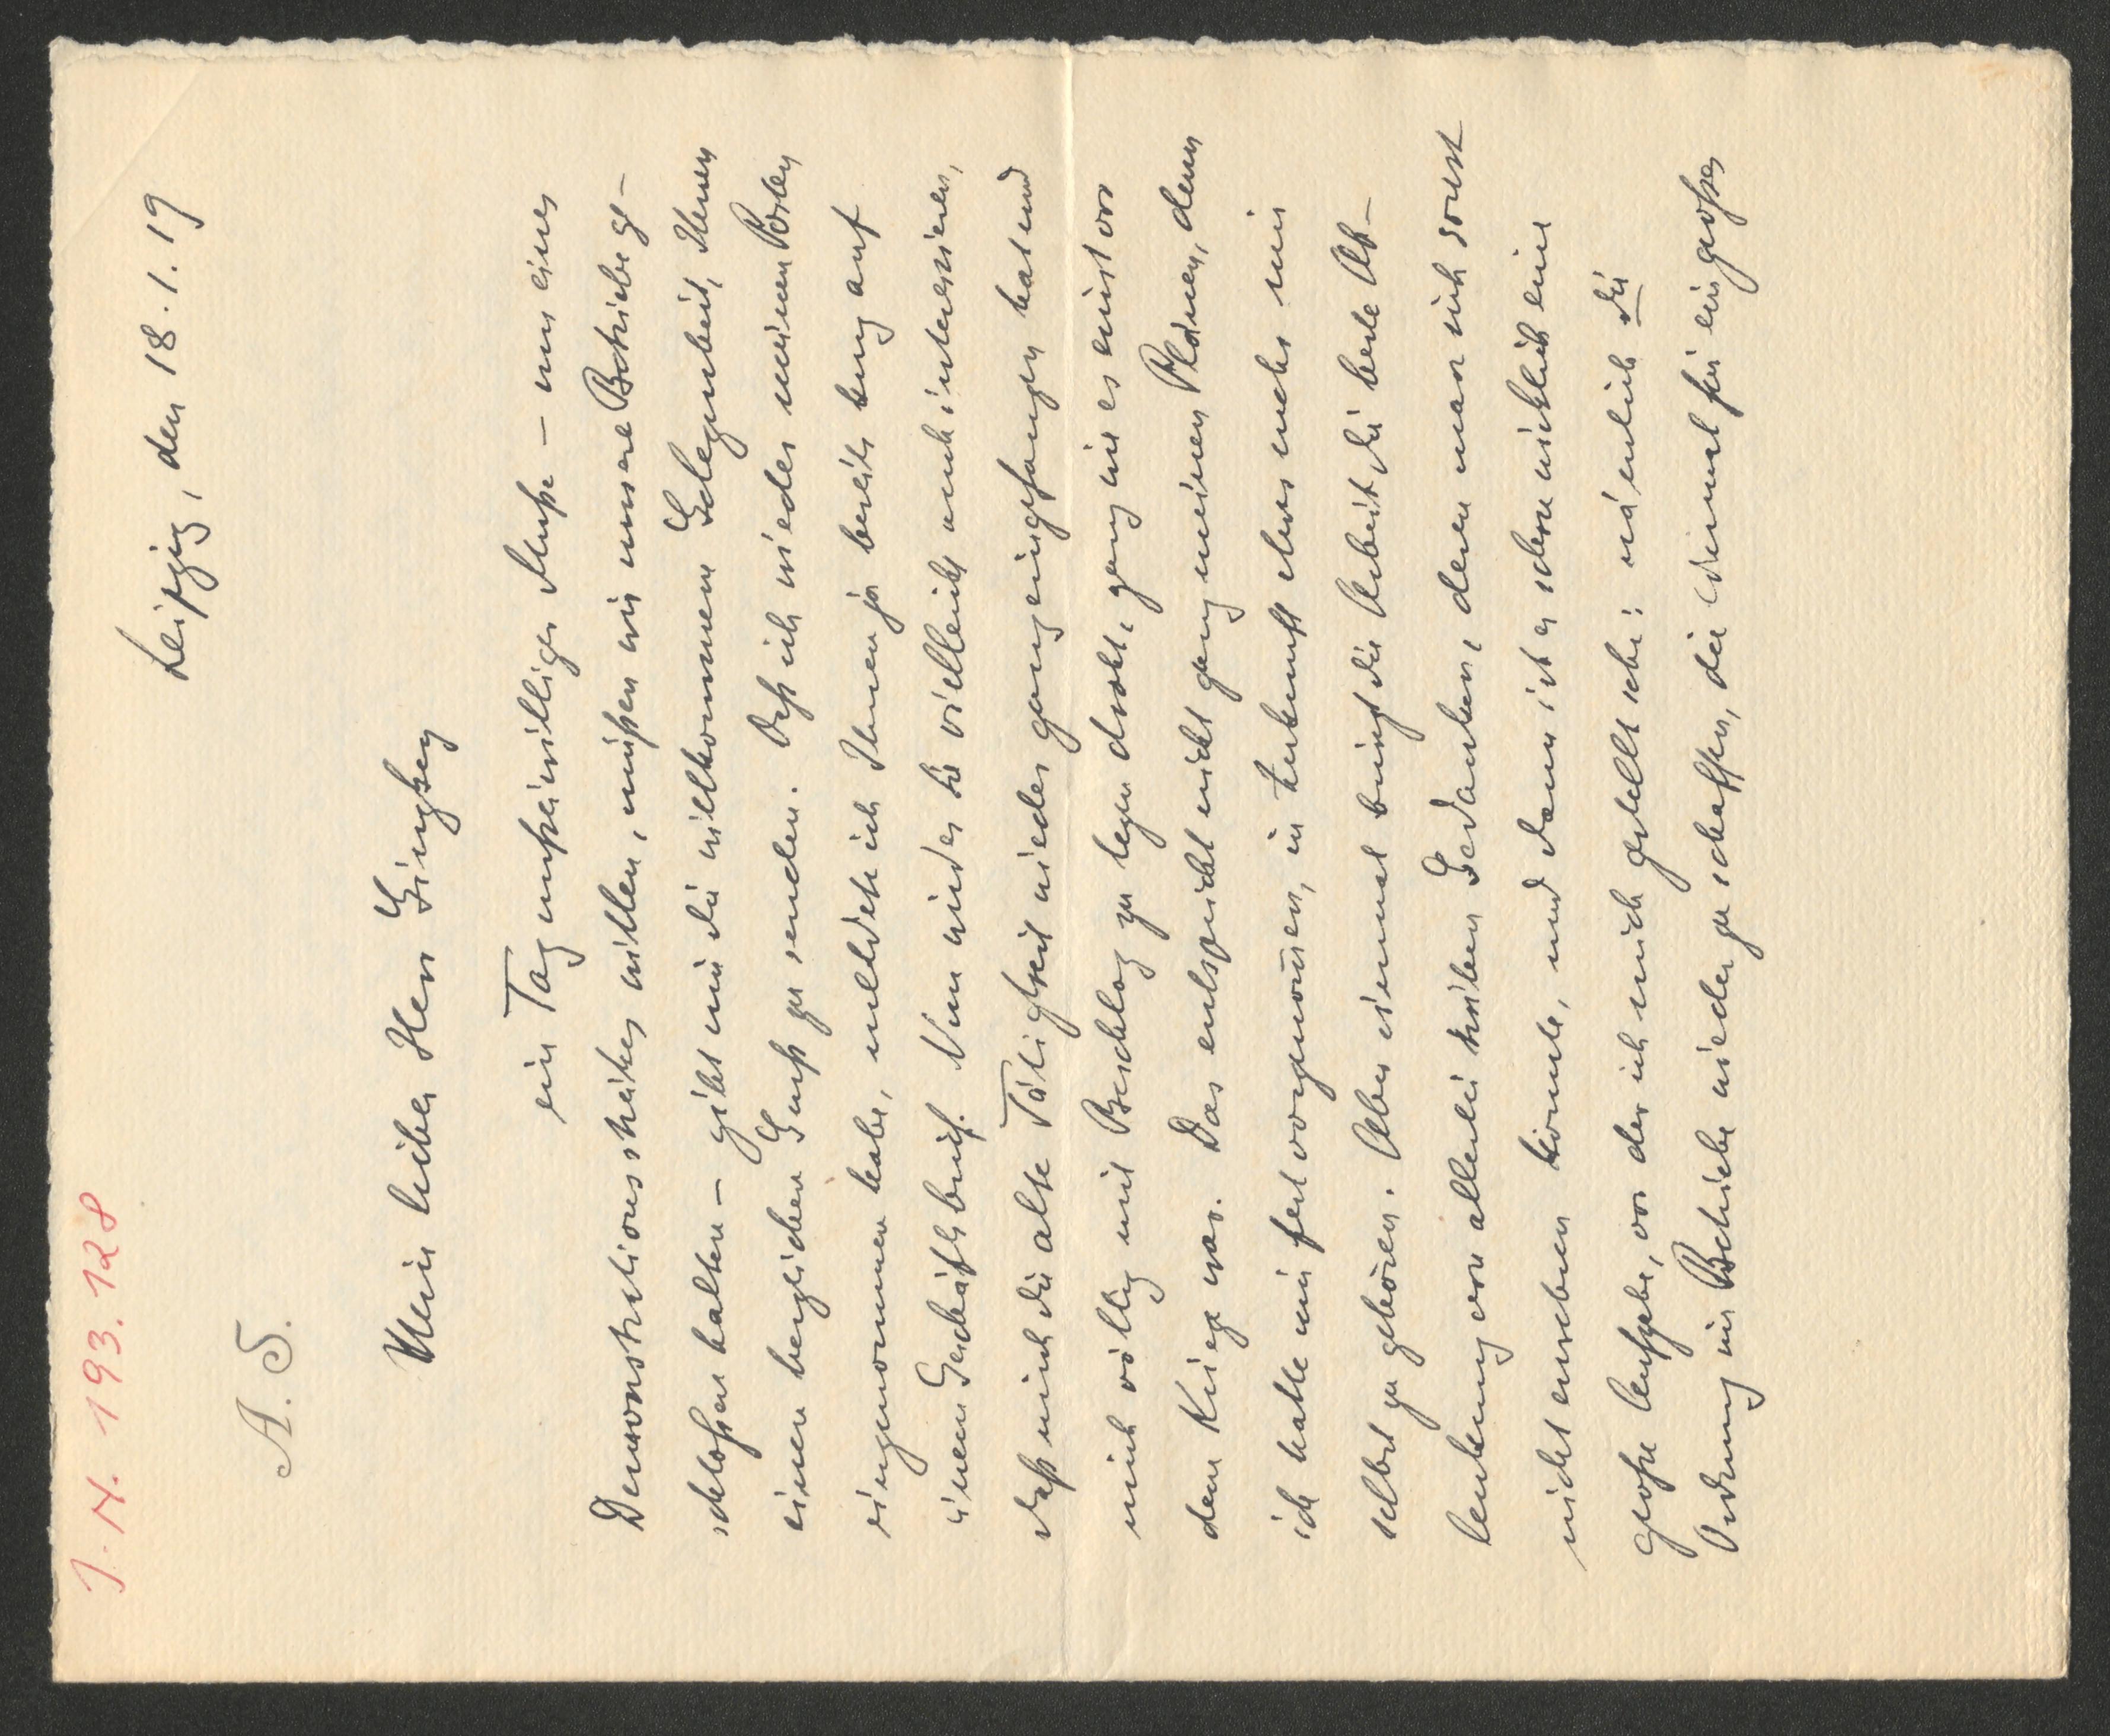 J. N. 193.128
Leipzig, den 18.1.19
A. S.
Mein lieber Herr Ginzkey
ein Tag unfreiwilliger Muße – um eines
Demonstrationsstreikes willen, müßen wir unsere Betriebe ge-
schloßen halten – gibt mir die willkommene Gelegenheit, Ihnen
einen herzlichen Gruß zu senden. Daß ich wieder meinen Posten
eingenommen habe, meldete ich Ihnen ja bereits kurz auf
einem Geschäftsbrief. Nun wird es Sie vielleicht auch interessieren,
daß mich die alte Tätigkeit wieder ganz eingefangen hat und
mich völlig mit Beschlag zu legen droht, ganz wie es einst vor
dem Kriege war. Das entspricht nicht ganz meinen Plänen, denn
ich hatte mir fest vorgenom̅en, in Zukunft etwas mehr mir
selbst zu gehören. Aber einmal bringt die Arbeit die beste Ab-
lenkung von allerlei trüben Gedanken, deren man sich sonst
nicht erwehren könnte, und dann ist es schon wirklich eine
große Aufgabe, vor der ich mich gestellt sehe: nämlich die
Ordnung im Betriebe wieder zu schaffen, die einmal für ein großes